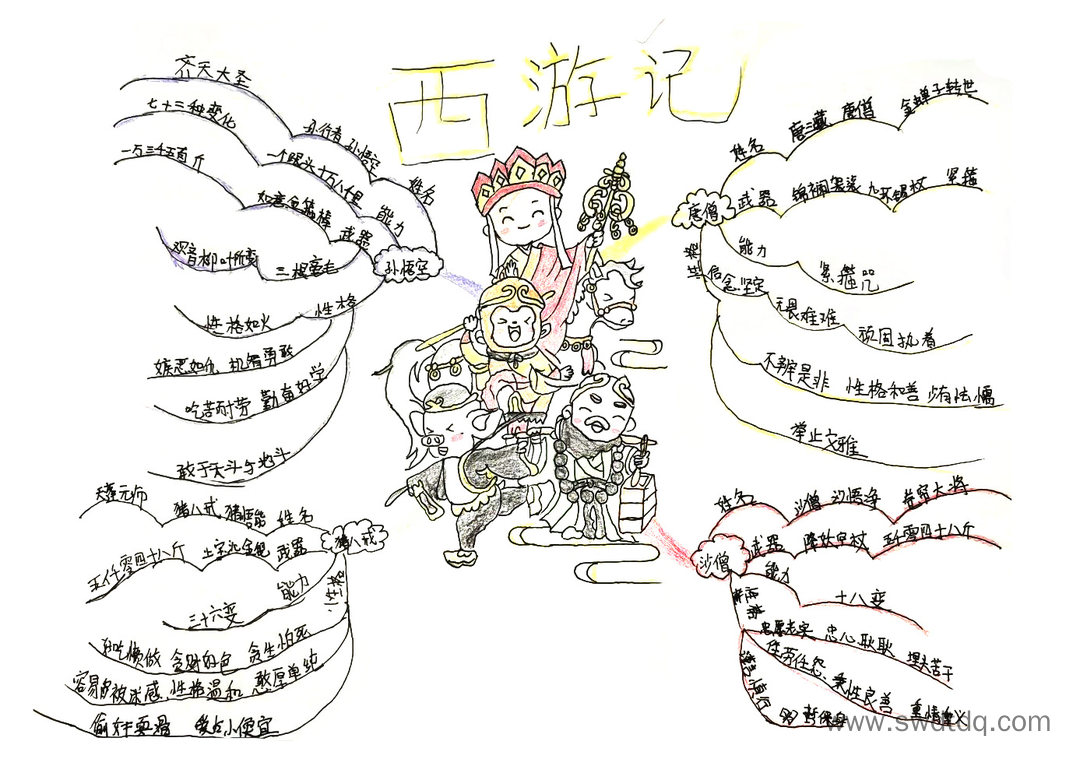 西游记
齐天大圣
七十三种变化
孙行者 孙悟空
姓名
一万三千五百斤
一个跟头十万八千里
能力
如意金箍棒
武器
孙悟空
观音柳叶所变
三根毫毛
性格如火
性格
嫉恶如仇 机智勇敢
吃苦耐劳 勤奋好学
敢于天斗与地斗
唐僧
姓名
唐三藏 唐僧
金蝉子转世
武器
锦襕袈裟
九环锡杖
紧箍
能力
紧箍咒
信念坚定
无畏难难
顽固执着
不辨是非 性格和善 少有怯懦
举止文雅
猪八戒
天蓬元帅
猪八戒 猪悟能
姓名
五仟零四十八斤
武器
能力
三十六变
性格
好吃懒做 贪财好色 贪生怕死
容易被迷惑 性格温和 憨厚单纯
偷奸耍滑
爱占小便宜
沙僧
姓名
沙僧
沙悟净
卷帘大将
武器
降妖宝杖
五千零四十八斤
能力
十八变
性格
忠厚老实
忠心耿耿
埋头苦干
任劳任怨
秉性良善
谨言慎行
www.swdtdq.com